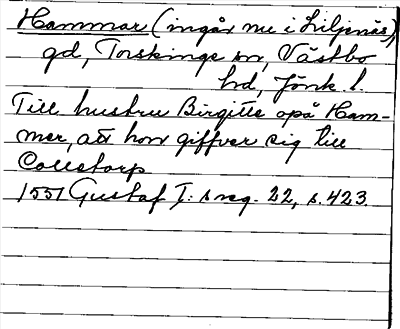 Hammar (ingår nu i Liljenäs),
gd, Torskinge sn, Västbo
hd, Jönk. l.
Till hustru Birgitte opå Ham-
mer, att hon giffver sig till
Colletorp
1551 Gustaf I: s reg. 22, s. 423.